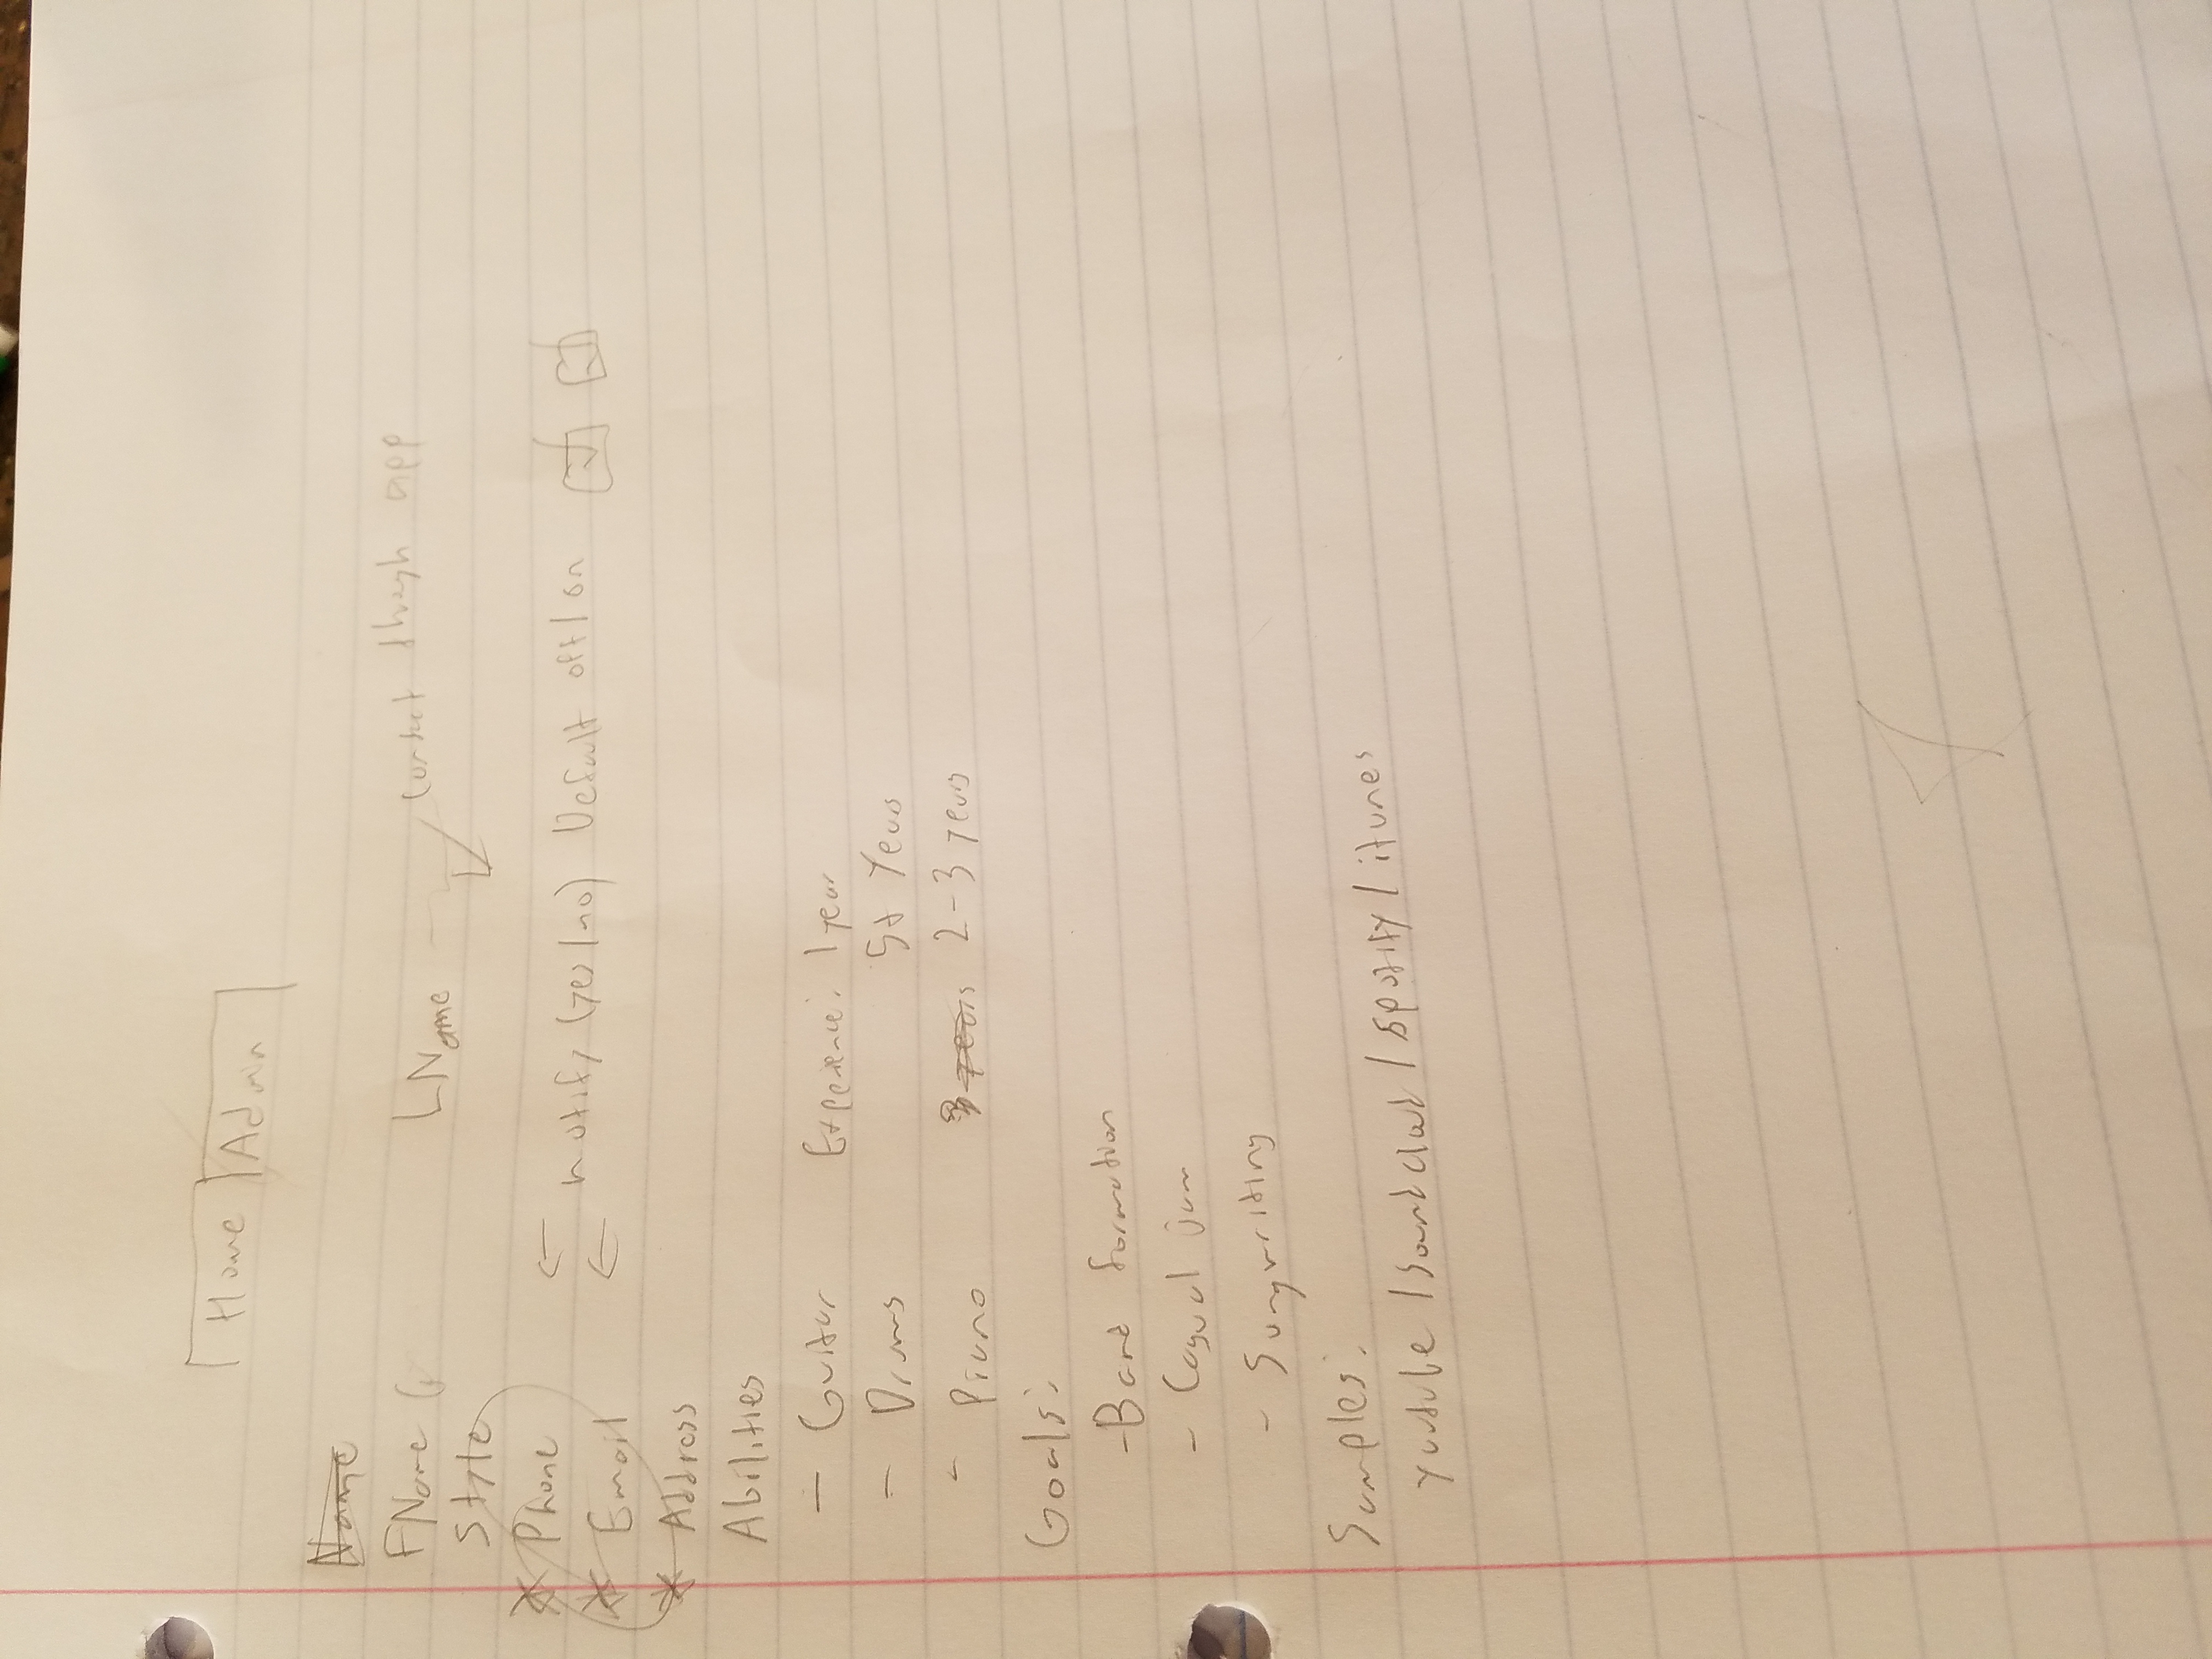 Home Admin
Name
FName LName contact through app
Style
* Phone
notify (yes/no) Default off/on
* Email
* Address
Abilities
- Guitar Experience: 1 year
- Drums 5+ Years
- Piano 3 years 2-3 years
Goals:
- Band formation
- Casual jam
- Songwriting
Samples:
youtube / Soundcloud / Spotify / itunes